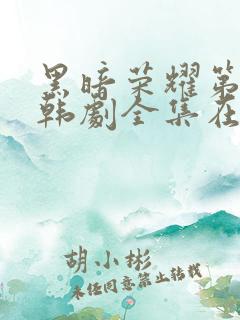 黑暗荣耀第
韩剧全集在
胡小彬
未经同意禁止转载